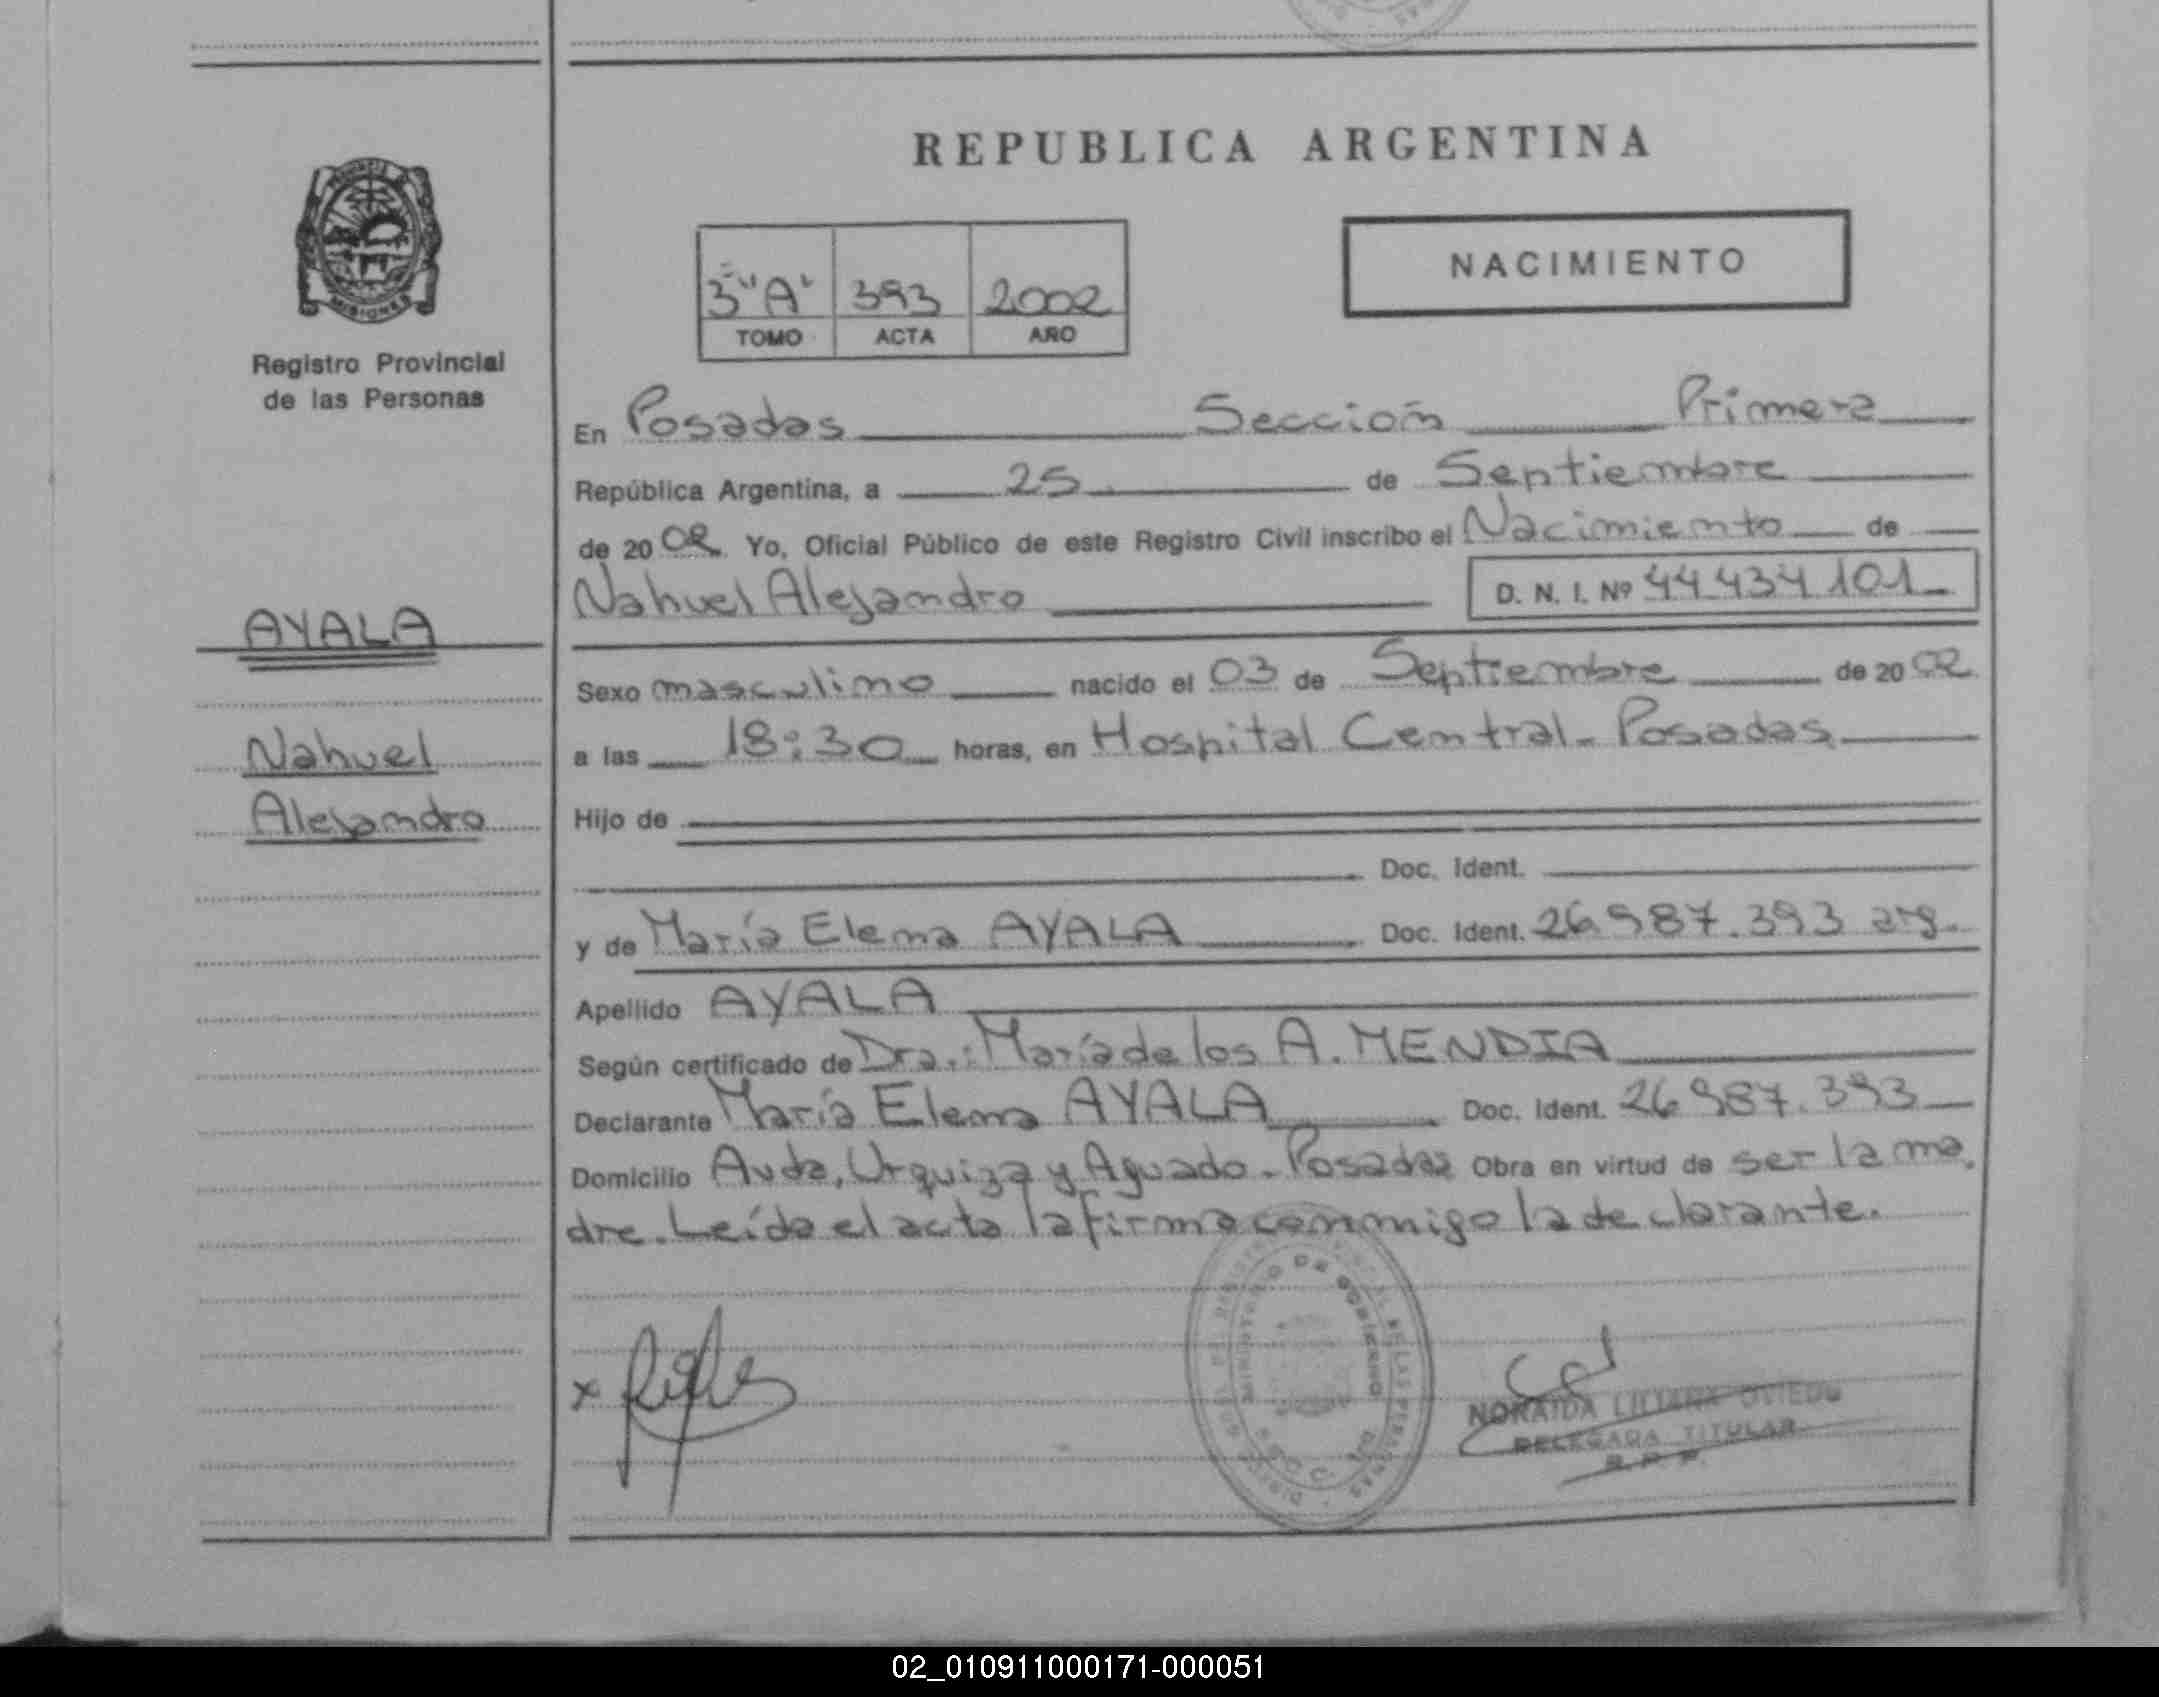 REPUBLICA ARGENTINA
PROVINCIA
MISIONES
Registro Provincial
de las Personas
3º "A" 393 2002
TOMO ACTA AÑO
NACIMIENTO
En Posadas Sección Primera
República Argentina, a 25 de Septiembre
de 2002 Yo, Oficial Público de este Registro Civil inscribo el Nacimiento de
Nahuel Alejandro D. N. I. Nº 44.434.101
AYALA
Nahuel
Alejandro
Sexo masculino nacido el 03 de Septiembre de 2002
a las 18:30 horas, en Hospital Central - Posadas
Hijo de
Doc. Ident.
y de María Elena AYALA Doc. Ident. 26.987.393 arg.
Apellido AYALA
Según certificado de Dra.: María de los A. MENDIA
Declarante María Elena AYALA Doc. Ident. 26.987.393
Domicilio Avda, Urquiza y Aguado - Posadas Obra en virtud de ser la ma
dre. Leída el acta la firma conmigo la declarante.
x
MINISTERIO DE GOBIERNO
NORAIDA LILIANA OVIEDO
DELEGADA TITULAR
R. P. P.
02_010911000171-000051